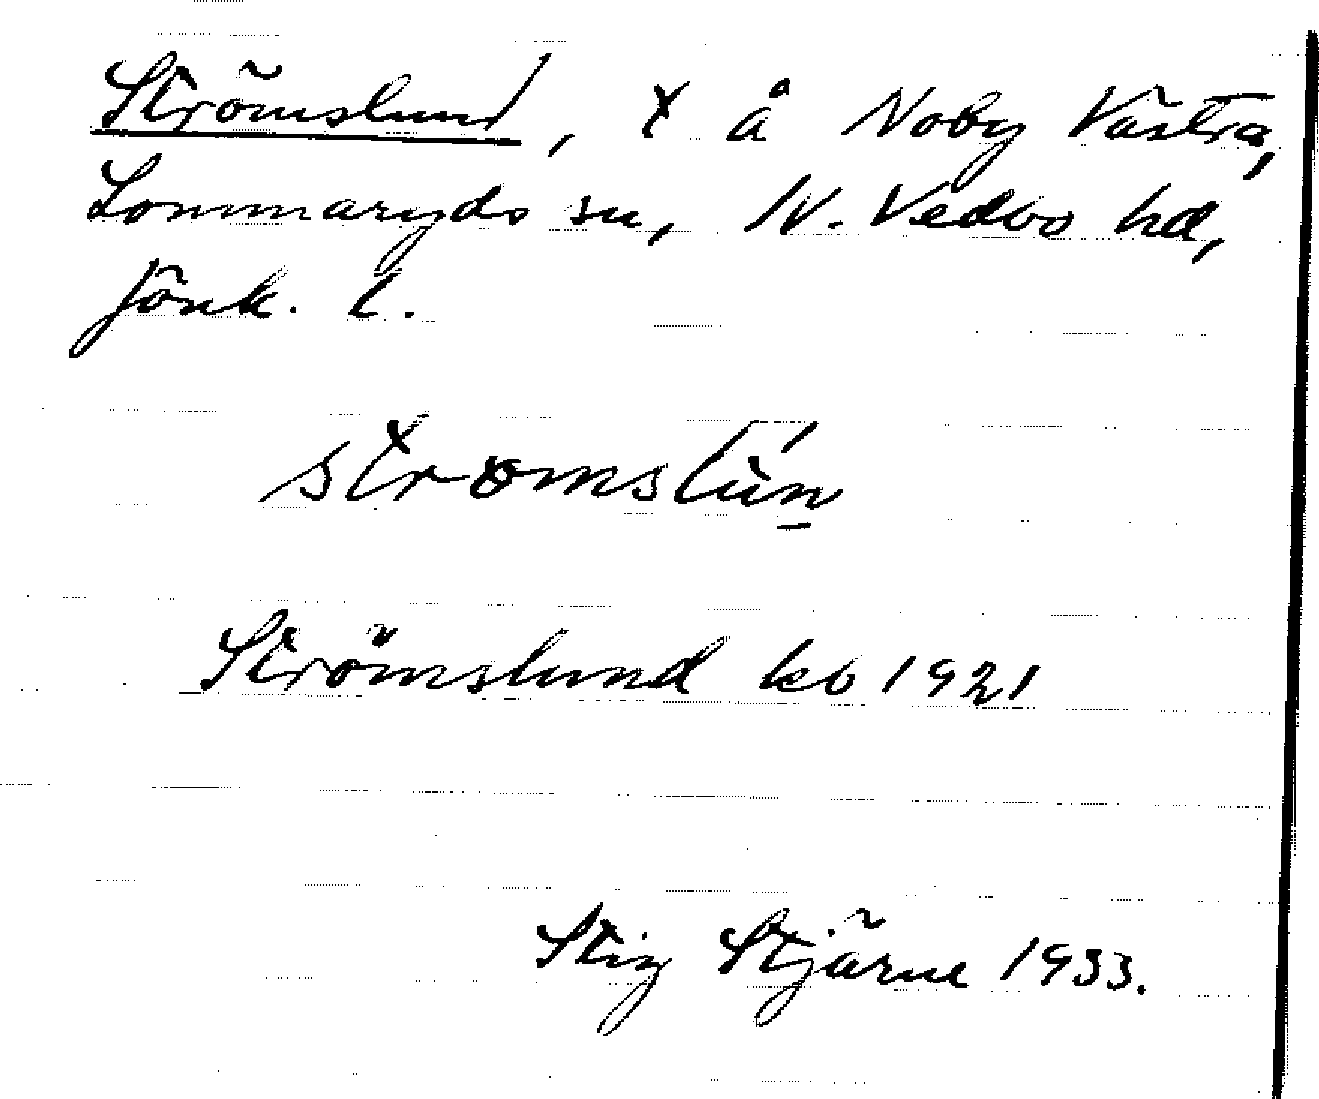 Strömslund, x å Noby Västra,
Lommaryds sn, N. Vedbo hd,
Jönk. l.
strömslùn
Strömslund kb 1921
Stig Stjärne 1933.